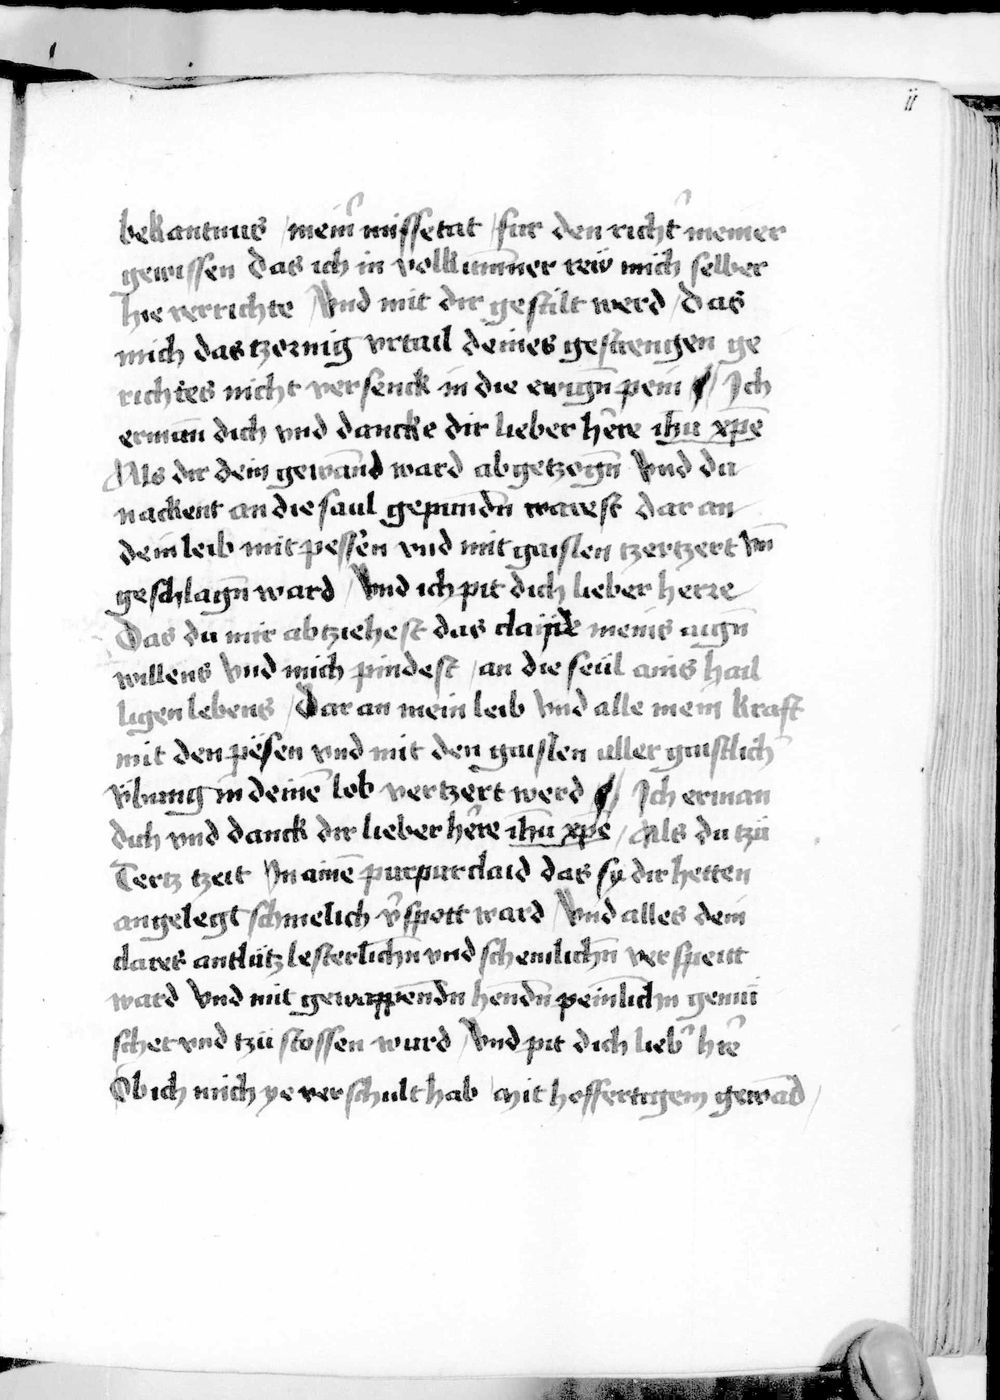 ij
bekantnus / mein̉ missetat / fur den richt̉ meiner
gewissen das ich in volkumner rew mich selber
hie verrichte / Vnd mit dir gestilt werd / das
mich das tzornig vrtail deines gestrengen ge
richtes nicht versenck in die ewign̄ pein / Ich
erman dich vnd dancke dir lieber h̄re ihū xp̄e
Als dir dein gewand ward abgetzogn̄ Vnd du
nackent an die saul gepundn̄ warest dar an
dein leib mit pessen vnd mit gaislen tzertzert vn̄
geschlagn̄ ward / Vnd ich pit dich lieber herre
Das du mir abtziehest das claide meins aign̄
willens Vnd mich pindest / an die seül ains hail
ligen lebens / Dar an mein leib Vnd alle mein kraft
mit den pesen vnd mit den gaislen aller gaistlich̉
vbung in deinē lob vertzert werd / Ich erman
dich vnd danck dir lieber h̄re ihū xp̄e / Als du tzü
Tertz tzeit In ainē purpurclaid das sy dir hetten
angelegt schmelich v̉spott ward / Vnd alles dein
clares antlütz lesterlichn̄ vnd schemlichn̄ verspeitt
ward Vnd mit gewappendn̄ hendn̄ peinlichn̄ gemü
schet vnd tzü stossen wurd / Vnd pit dich lieb̉ hr̉e
Ob ich mich ye verschult hab mit hoffertigem gewād /